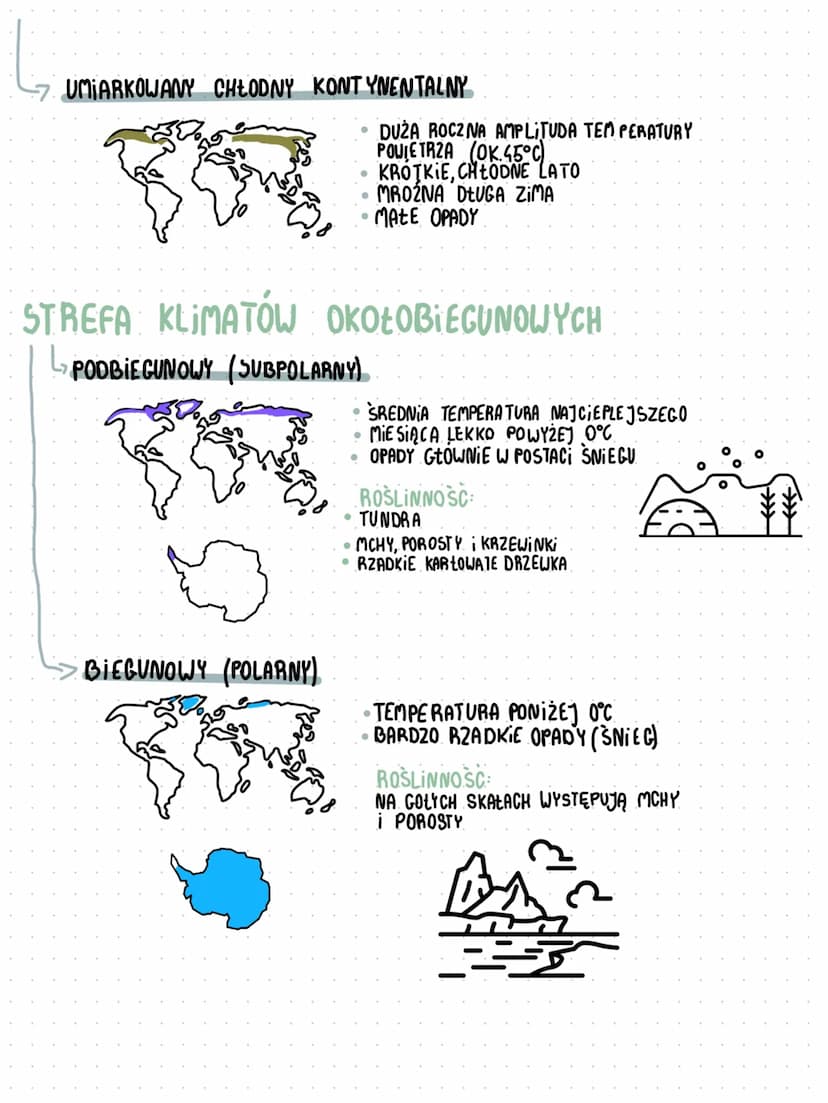 UMIARKOWANY CHŁODNY KONTYNENTALNY
• DUŻA ROCZNA AMPLITUDA TEMPERATURY
POWIETRZA (OK.45°C)
• KRÓTKIE, CHŁODNE LATO
• MROŹNA DŁUGA ZIMA
• MAŁE OPADY
STREFA KLIMATÓW OKOŁOBIEGUNOWYCH
PODBIEGUNOWY (SUBPOLARNY)
• ŚREDNIA TEMPERATURA NAJCIEPLEJSZEGO
• MIESIĄCA LEKKO POWYŻEJ 0°C
• OPADY GŁÓWNIE W POSTACI ŚNIEGU
ROŚLINNOŚĆ:
• TUNDRA
• MCHY, POROSTY I KRZEWINKI
• RZADKIE KARŁOWATE DRZEWKA
BIEGUNOWY (POLARNY)
• TEMPERATURA PONIŻEJ 0°C
• BARDZO RZADKIE OPADY (ŚNIEG)
ROŚLINNOŚĆ:
NA GOŁYCH SKAŁACH WYSTĘPUJĄ MCHY
I POROSTY